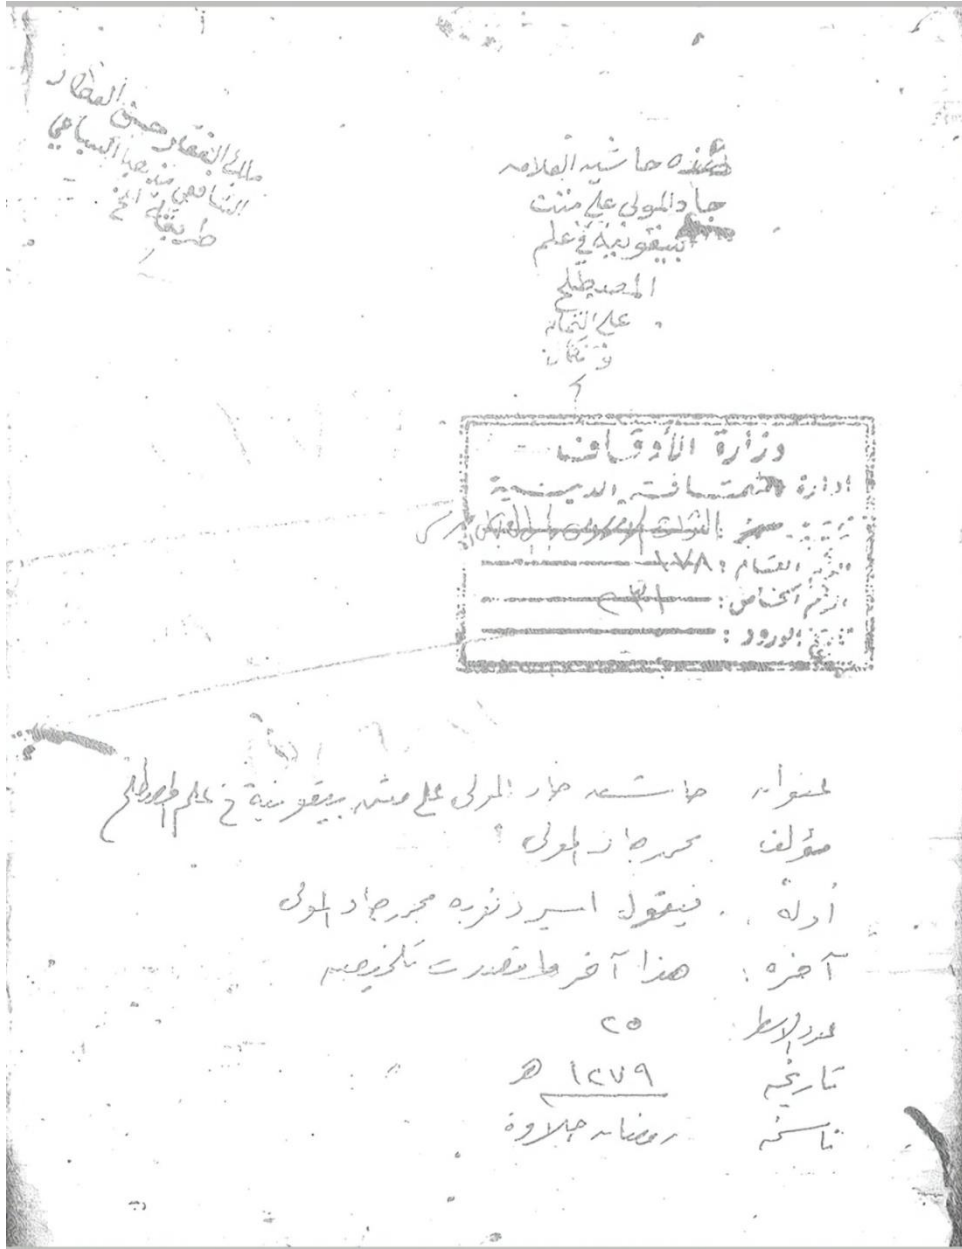 ملك الفقير حسن العطار
الشافعي مذهبا السباعي
طريقة الخ
هذه حاشية العلامه
جاد المولى على متن
بيقونية في علم
المصطلح
على التمام
وزارة الأوقاف
ادارة الثقافة الدينية
الرقم العام : ١٧٨
الرقم الخاص : ٢٣١
تاريخ الورود :
عنوانه حاشية جاد المولى على متن بيقونية في علم المصطلح
مؤلف محمد جاد المولى
أوله . فيقول اسير ذنوبه محمد جاد المولى
آخره : هذا آخر ما قصدت تلخيصه
عدد الاسطر ٢٥
تاريخه ١٢٧٩ هـ
ناسخه رمضان حلاوة